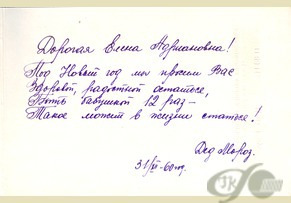 Дорогая Елена Адриановна!
Под Новый год мы просим Вас
Здоровой, радостной остаться,
Быть бабушкой 12 раз —
Такое может в жизни статься!
Дед Мороз.
31/XII-60 г.